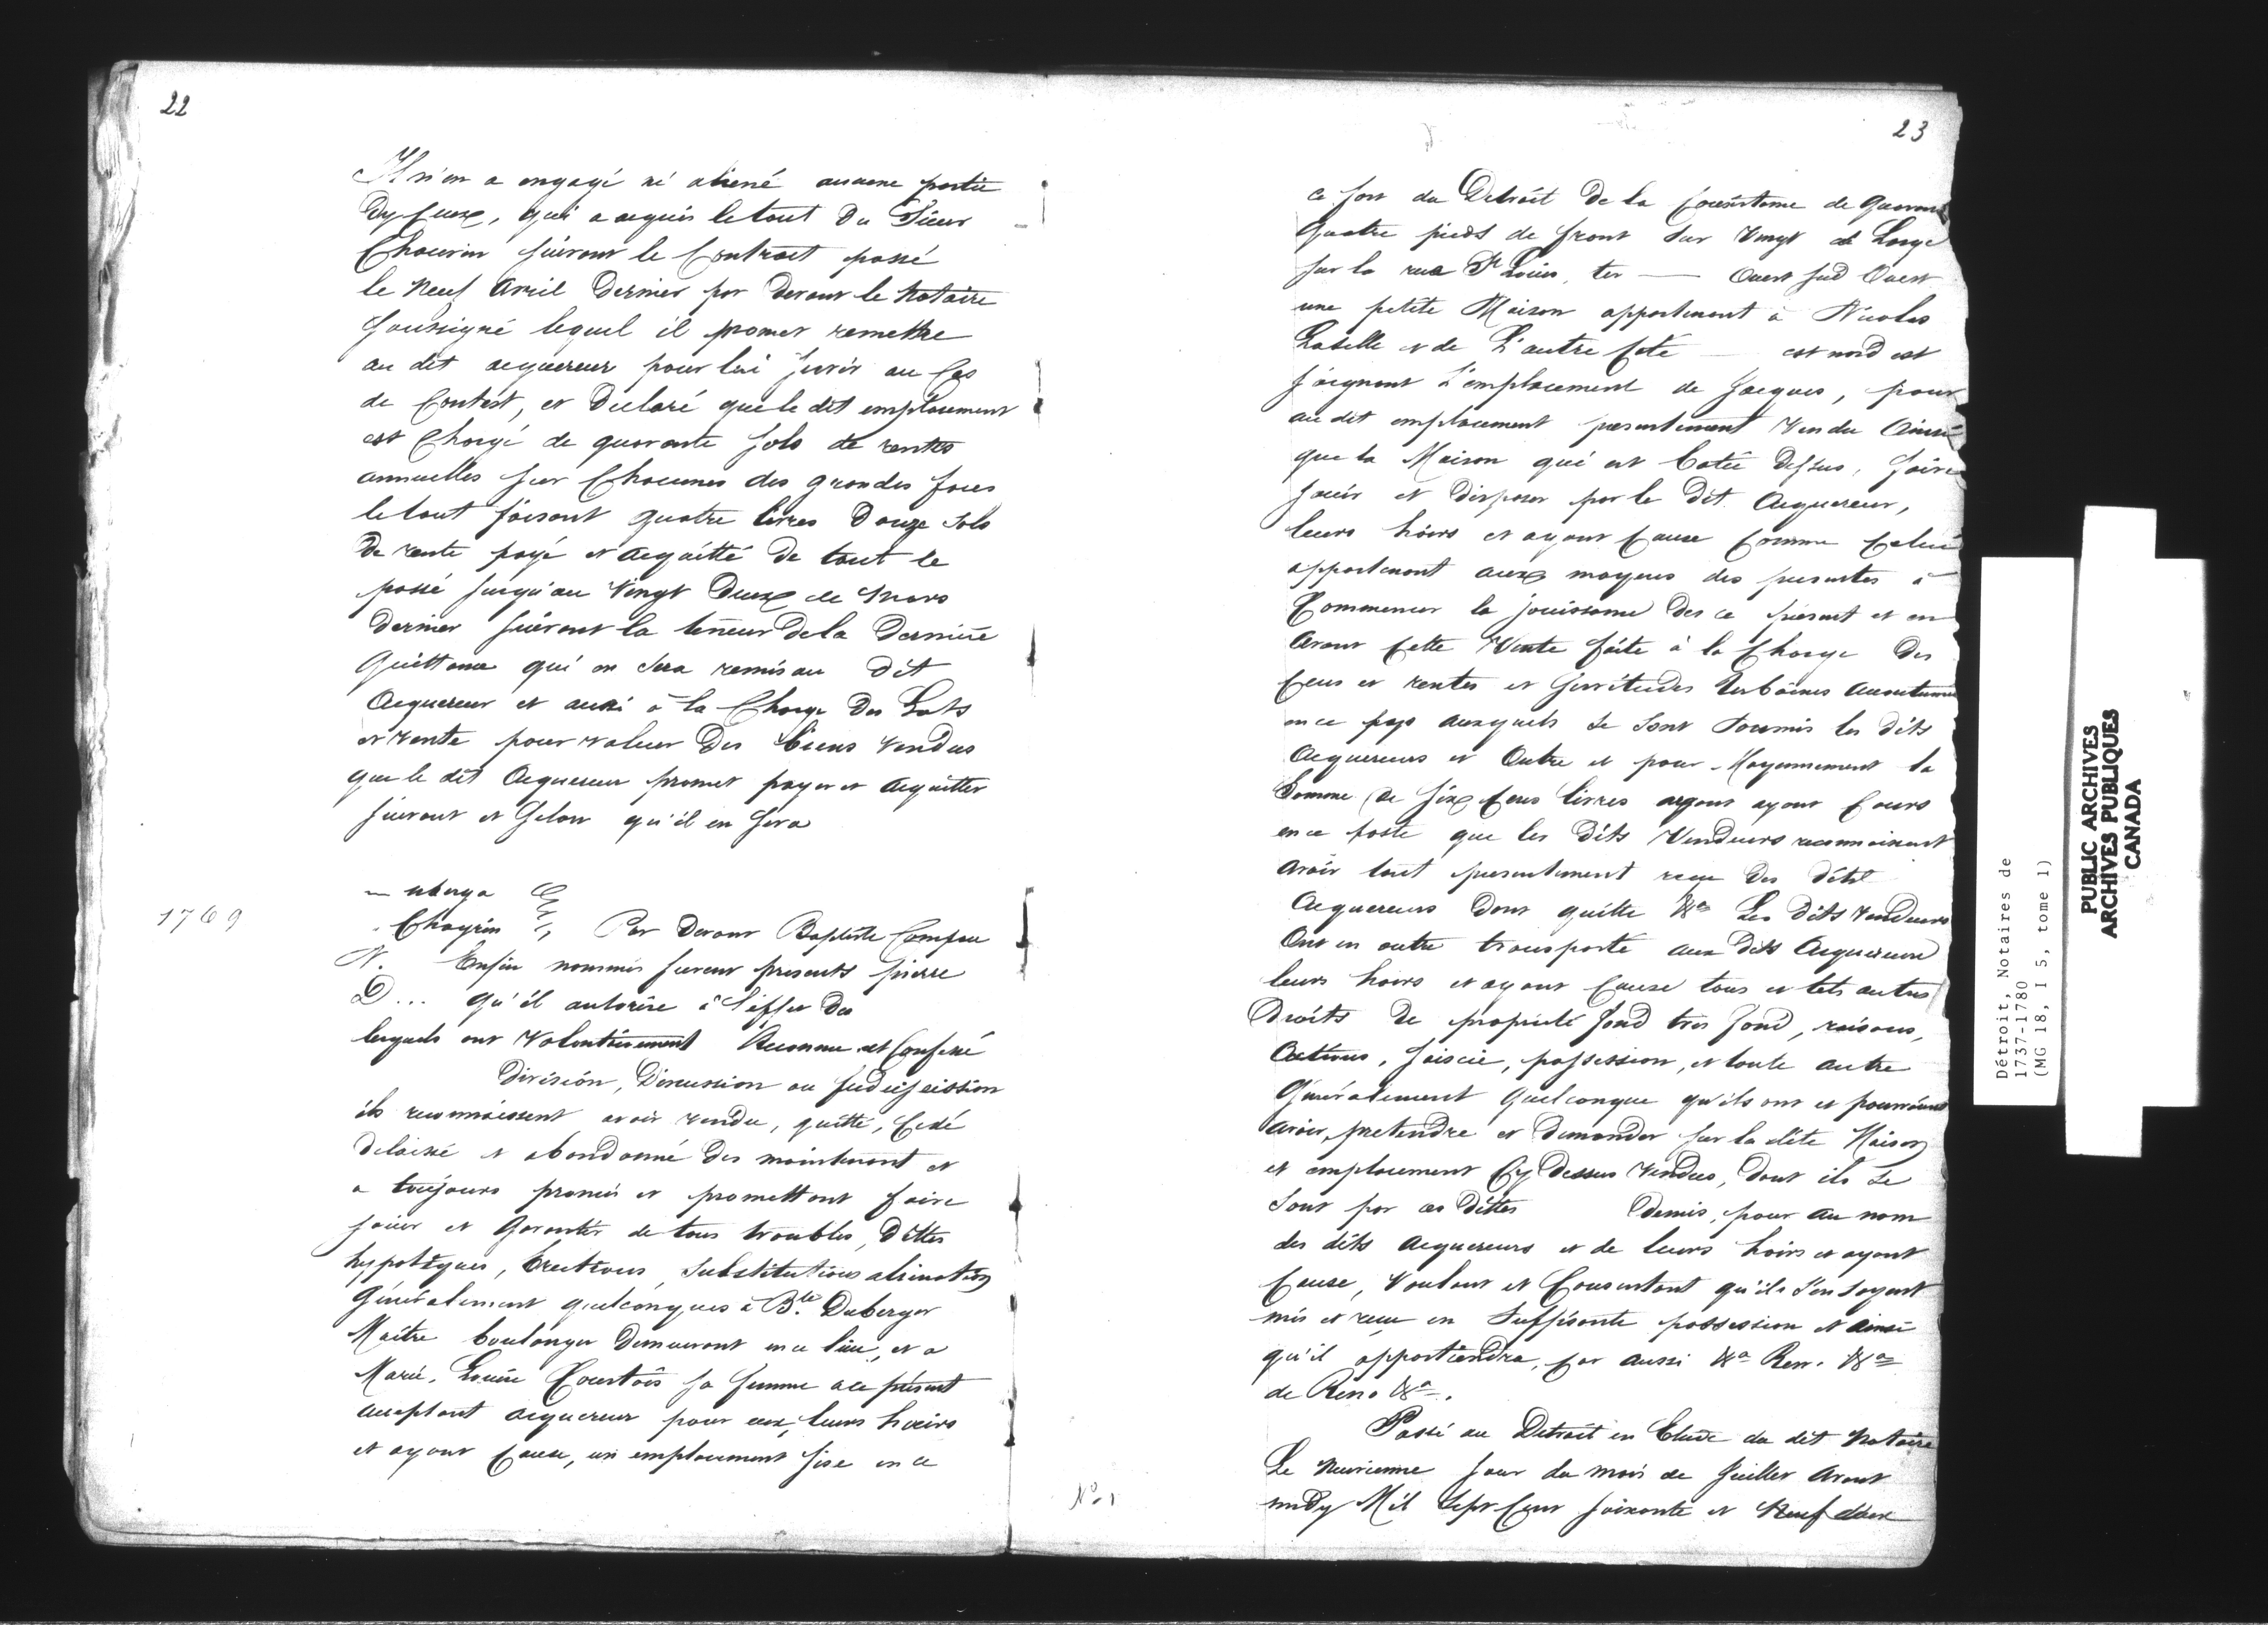 22
Il n'en a engagé ni aliené aucune partie
Dyceux, qui a acquis le tout Du Sieur
Chauvin suivant le Contract passé
le Neuf Avril Dernier par devant le Notaire
Soussigné lequel il promet remettre
au dit acquereur pour lui servir au Cas
de Contest, et Declaré que le dit emplacement
est Chargé de quarante sols de rentes
annuelles sur Chacunes des grandes faces
le tout faisant quatre livres Douze Sols
De rente payé et acquitté De tout le
passé jusqu'au Vingt Deux de Mars
Dernier suivant la teneur De la Dernière
Quittance qui en Sera remis au Dit
Acquereur et aussi à la Charge Des Lots
et vente pour valeur Des biens vendus
que le dit Acquereur promet payer et Acquitter
suivant et Selon qu'il en sera
1769
uberge
Chagrin Par Devant Baptiste Campau
N. Enfin nommés furent presents pierre
D... qu'il autorise à l'effet Des
lesquels ont Volontairement Reconnu et Confessé
Division, Discussion ou
ils reconnaissent avoir vendu, quitté, Cedé
Delaissé et abandonné Des maintenant et
a toujours promis et promettant faire
jouir et Garantir de tous troubles, Dettes
hypotèques, Evictions, Substitutions alienations
Généralement quelconques à Bte. Duberger
Maître boulanger Demeurant en ce lieu, et a
Marie, Louise Courtois sa femme a ce présent
acceptant acquereur pour eux, leurs hoirs
et ayant Cause, un emplacement sise en ce
23
ce fort du Detroit De la de Quarante
Quatre pieds de front Sur Vingt de Large
sur la rue St Louis, ter — Ouest Sud Ouest
une petite Maison appartenant à Nicolas
Laselle et de L'autre Coté — est nord est
joignant L'emplacement de Jacques, pour
au dit emplacement presentement Vendu Ainsi
que la Maison qui est batie Dessus, faire
jouir et Disposer par le Dit Acquereur,
leurs hoirs et ayant Cause Comme Celui
appartenant aux moyens des presentes à
Commencer la jouissance Des ce present et en
Avant Cette Vente faite à la Charge Des
Cens et rentes et Servitudes Urbaines Accoutumés
en ce pays auxquels Se Sont Soumis les dits
Acquereurs et Outre et pour Moyennement la
Somme De Six Cens livres argent ayant Cours
en ce poste que les Dits Vendeurs reconnaissent
Avoir tout presentement reçu Des dits
Acquereurs Dont quitte &a Les Dits Vendeurs
Ont en outre transporté aux Dits Acquereurs
leurs hoirs et ayant Cause tous et tels autres
Droits De propriété fond tres fond, raisons,
Actions, Saisie, possession, et toute autre
Généralement Quelconque qu'ils ont et pourraient
Avoir, pretendre et Demander sur la dite Maison
et emplacement Cy Dessus Vendus, Dont ils Se
Sont par ces Dittes Demis, pour au nom
des dits Acquereurs et de leurs hoirs et ayant
Cause, Voulant et Consentant qu'ils S'en Soyent
mis et reçu en Suffisante possession et ainsi
qu'il appartiendra, Car aussi &a Ren. &a
de Reno &a.
Passé au Detroit en Etude du dit Notaire
Le Neuvieme jour du mois de Juillet Avant
midy Mil Sept Cent Soixante et Neuf
No. 1
Détroit, Notaires de
1737-1780
(MG 18, I 5, tome 1)
PUBLIC ARCHIVES
ARCHIVES PUBLIQUES
CANADA